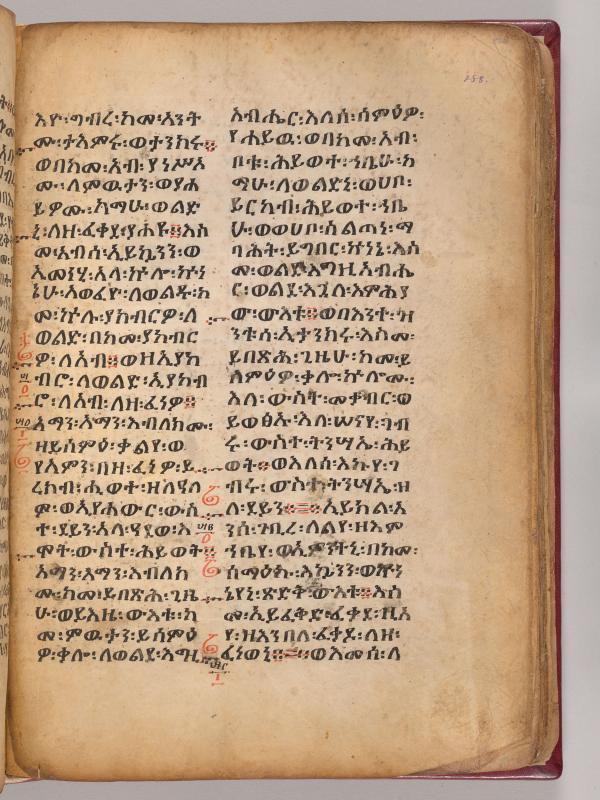 እዮ፡ግብረ፡ከመ፡አንት
ሙ፡ታእምሩ፡ወታንክሩ።
ወበከመ፡አብ፡ያነሥኦ
ሙ፡ለምዉታን፡ወያሐ
ይዎሙ፡ከማሁ፡ወልድ
ኒ፡ለዘ፡ፈቀደ፡ያሐዩ።እስ
መ፡አብሰ፡ኢይኴንን፡ወ
ኢመነሂ፡አላ፡ኵሎ፡ኵነ
ኔሁ፡አወፈዮ፡ለወልዱ፡ከ
መ፡ኵሉ፡ያክብርዎ፡ለ
ወልድ፡በከመ፡ያከብር
ዎ፡ለአብ።ወዘኢያከ
ብሮ፡ለወልድ፡ኢያከብ
ሮ፡ለአብ፡ለዘ፡ፈነዎ።
አማን፡አማን፡እብለክሙ፡
ዘይሰምዕ፡ቃልየ፡ወ
የአምን፡በዘ፡ፈነዎ፡ይ
ረክብ፡ሒወተ፡ዘለዓለ
ም፡ወኢየሐውር፡ውስ
ተ፡ደይን፡አላ፡ዓደወ፡እ
ሞት፡ውስተ፡ሕይወት።
አማን፡አማን፡እብለክ
ሙ፡ከመ፡ይበጽሕ፡ጊዜ
ሁ፡ወይእዜ፡ውእቱ፡ከ
መ፡ምዉታን፡ይሰምዕ
ዎ፡ቃሎ፡ለወልደ፡እግዚ
አብሔር፡እለሰ፡ሰምዕዎ፡
የሐይዉ፡ወበከመ፡አብ፡
ቦቱ፡ሕይወተ፡ኀቤሁ፡ከ
ማሁ፡ለወልድኒ፡ወሀቦ፡
ይርከብ፡ሕይወተ፡ኀቤ
ሁ፡ወወሀቦ፡ስልጣነ፡ማ
ባሕት፡ይግበር፡ኵነኔ፡እስ
መ፡ወልደ፡እግዚአብሔ
ር፡ወልደ፡እጓለ፡እምሕያ
ው፡ውእቱ።ወበእንተ፡ዝ
ንቱሰ፡ኢታንክሩ፡እስመ፡
ይበጽሕ፡ጊዜሁ፡ከመ፡ይ
ሰምዕዎ፡ቃሎ፡ኵሎሙ፡
እለ፡ውስተ፡መቃብር፡ወ
ይወፅኡ፡እለ፡ሠናየ፡ገብ
ሩ፡ውስተ፡ትንሣኤ፡ሕይ
ወት።ወእለሰ፡እኩየ፡ገ
ብሩ፡ውስተ፡ትንሣኤ፡ዝ
ለ፡ደይን።ኢይክል፡አ
ንሰ፡ገቢረ፡ለልየ፡ዘእም
ኀቤየ፡ወኢምንትኒ፡በከመ፡
ሰማዕኩ፡እኴንን፡ወኵነ
ኔየኒ፡ጽድቅ፡ውእቱ።እስ
መ፡ኢይፈቅድ፡ፈቃደ፡ዚአ
የ፡ዘእንበለ፡ፈቃደ፡ለዘ፡
ፈነወኒ።ወእመሰ፡ለ